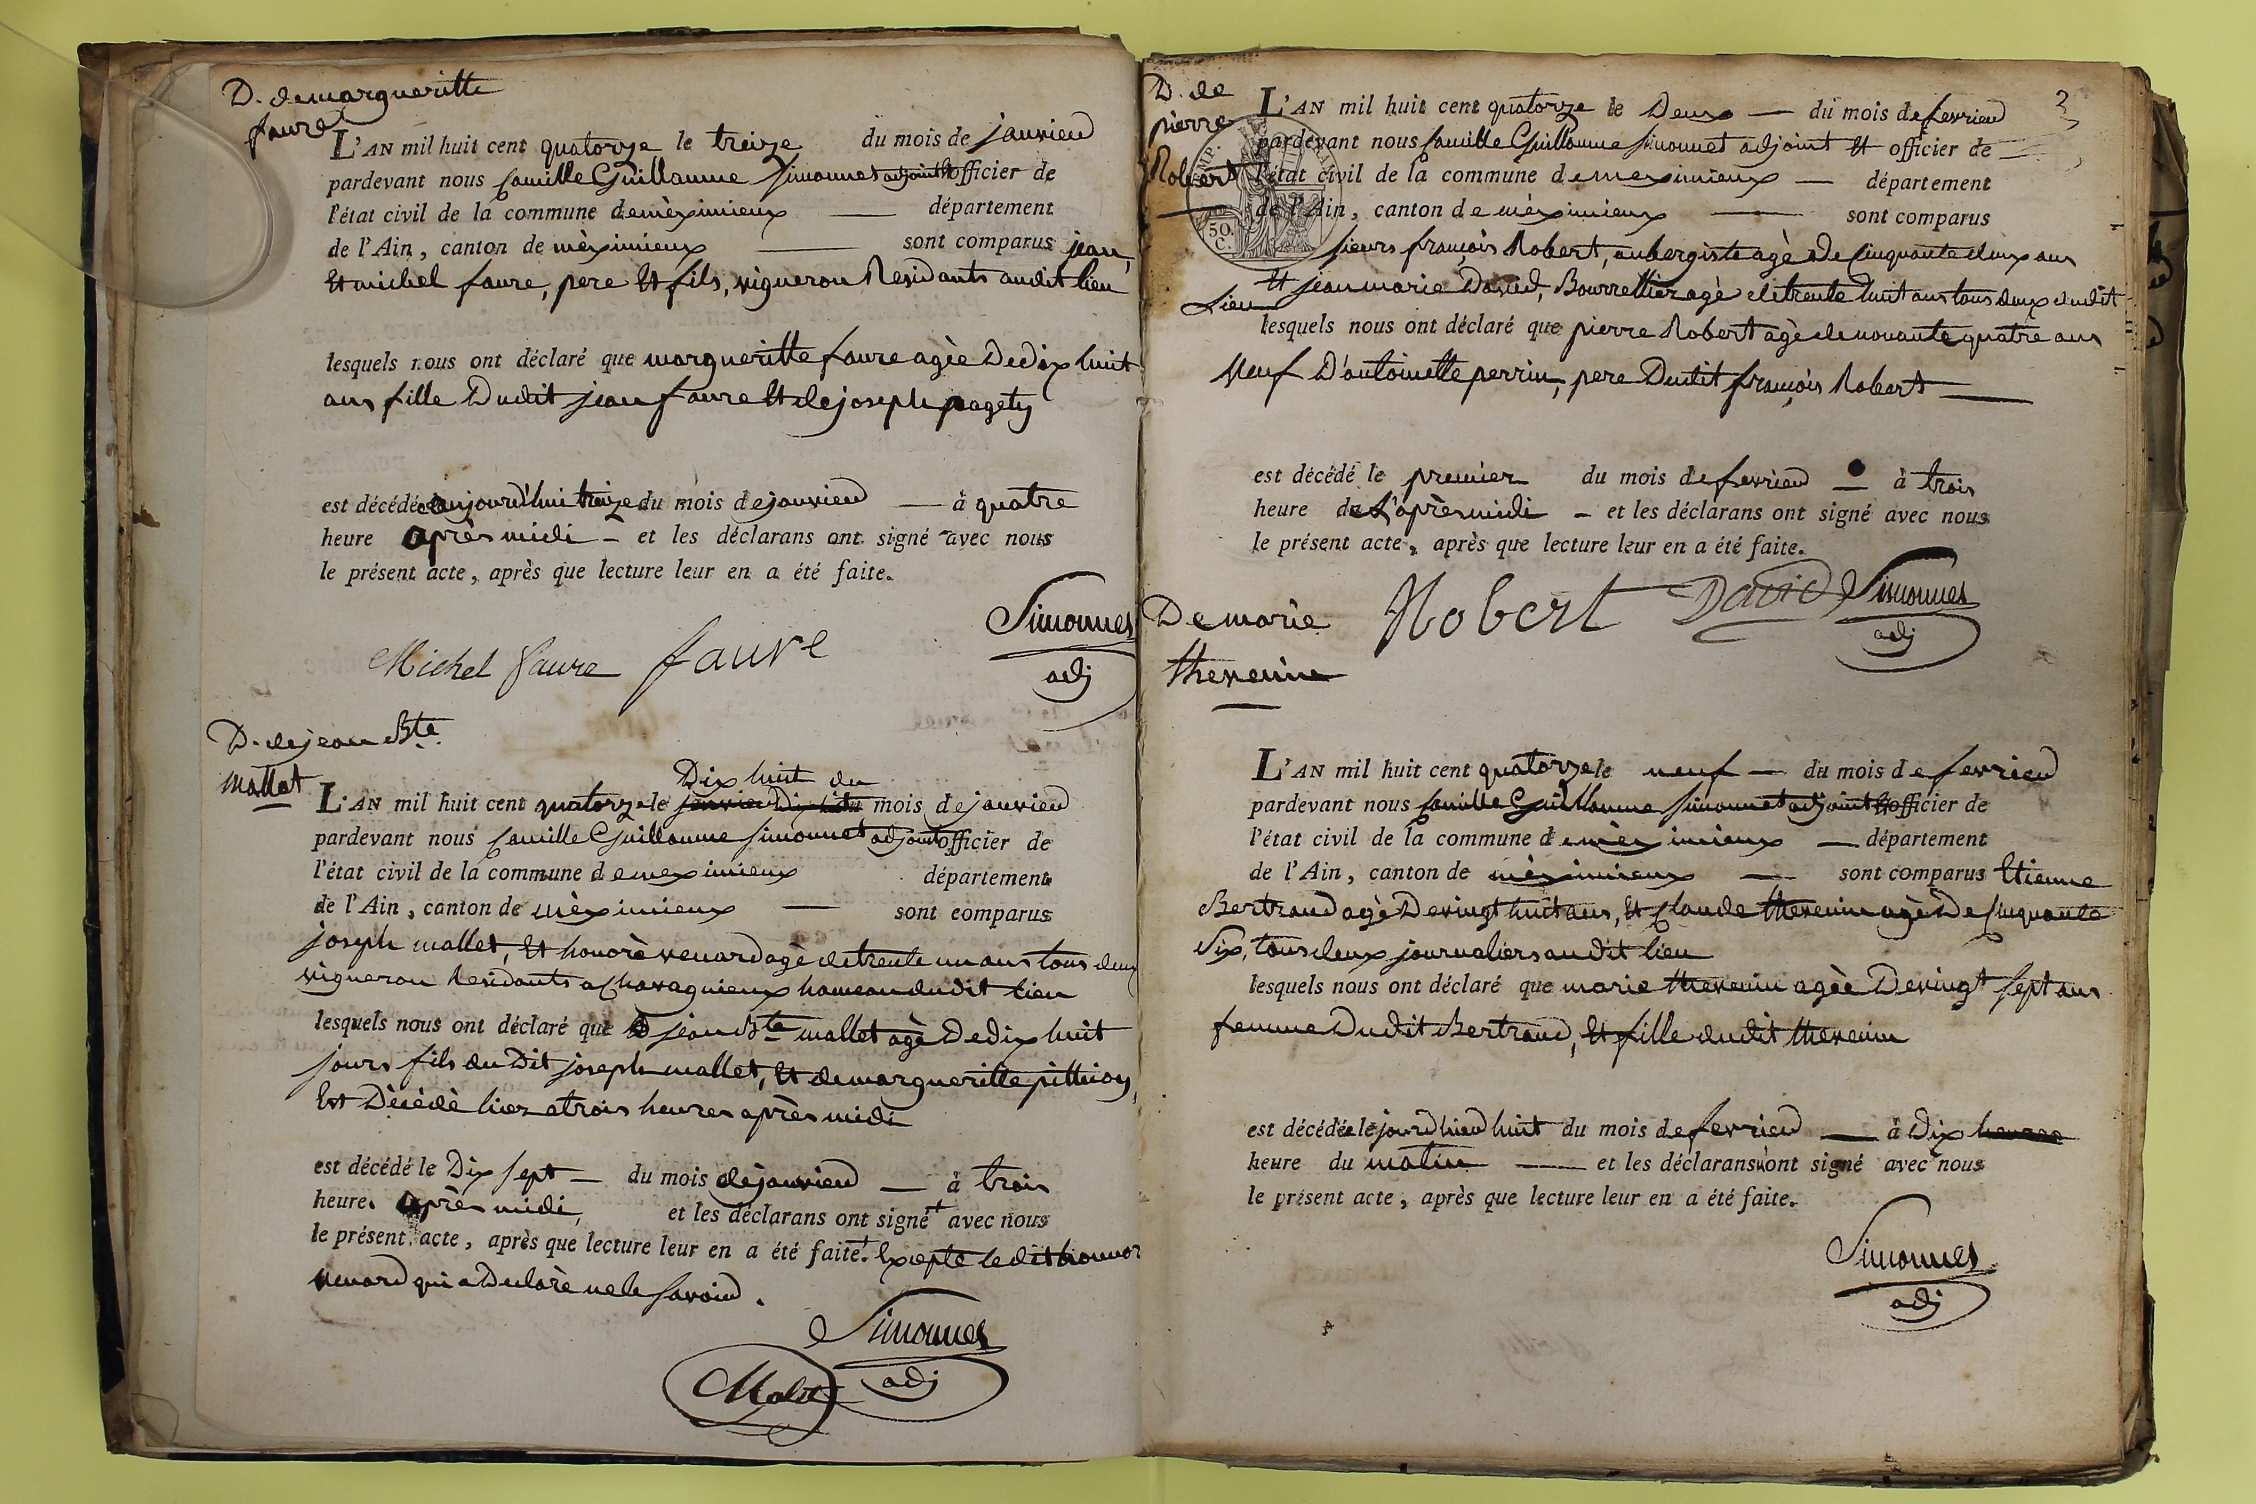 D. de margueritte
faure
L'AN mil huit cent quatorze le treize du mois de janvier
pardevant nous Camille Guillaume Simonnet adjoint et officier de
l'état civil de la commune de mèximieux département
de l'Ain, canton de mèximieux sont comparus jean,
Et michel faure, pere Et fils, vigneron Residants audit lieu
lesquels nous ont déclaré que margueritte faure agèe De dix huit
ans fille Dudit jean faure Et de joseph pagety
est décédé aujourd'hui treize du mois de janvier à quatre
heure après midi et les déclarans ont signé avec nous
le présent acte, après que lecture leur en a été faite.
Simonnet
adj
Michel Faure faure
D. de jean Bte
mallet
Dix huit du
L'AN mil huit cent quatorze le janvier Dix huit du mois de janvier
pardevant nous Camille Guillaume Simonnet adjoint officier de
l'état civil de la commune de meximieux département
de l'Ain, canton de mèximieux sont comparus
joseph mallet, Et honorè renard agè de trente un ans tous deux
vigneron Residants a Chavagnieux hameau dudit lieu
lesquels nous ont déclaré que jean Bte mallet agè De dix huit
jours fils du Dit joseph mallet, Et de margueritte pithioy,
Est Dècèdè hier a trois heures après midi
est décédé le Dix sept du mois de janvier à trois
heure. après midi, et les déclarans ont signé + avec nous
le présent acte, après que lecture leur en a été faite. + Excepté ledit honnor
renard qui a Declarè ne le savoir.
Simonnet
adj
Malet
3
D. de
pierre
Robert
L'AN mil huit cent quatorze le Deux du mois de fevrier
pardevant nous Camille Guillaume Simonnet adjoint Et officier de
l'état civil de la commune de meximieux département
de l'Ain, canton de mèximieux sont comparus
50
C.
sieurs françois Robert, aubergiste agè De Cinquante deux ans
Et jean marie David, Bourrellier agè de trente huit ans tous deux dudit
Lieu
lesquels nous ont déclaré que pierre Robert agè de nonante quatre ans
veuf D'antoinette perrin, pere Dudit françois Robert
est décédé le premier du mois de fevrier à trois
heure de L'après midi et les déclarans ont signé avec nous
le présent acte, après que lecture leur en a été faite.
Robert David Simonnet
adj
De marie
thevenin
L'AN mil huit cent quatorze le neuf du mois de fevrier
pardevant nous Camille Guillaume Simonnet adjoint Et officier de
l'état civil de la commune de mèximieux département
de l'Ain, canton de mèximieux sont comparus Etienne
Bertrand agè De vingt huit ans, Et Claude thevenin agè De Cinquante
Six, tous deux journaliers audit lieu
lesquels nous ont déclaré que marie thevenin agèe De vingt sept ans
femme Dudit Bertrand, Et fille dudit thevenin
est décédée le jourd'hier huit du mois de fevrier à Dix heures
heure du matin et les déclarans n'ont signé avec nous
le présent acte, après que lecture leur en a été faite.
Simonnet
adj